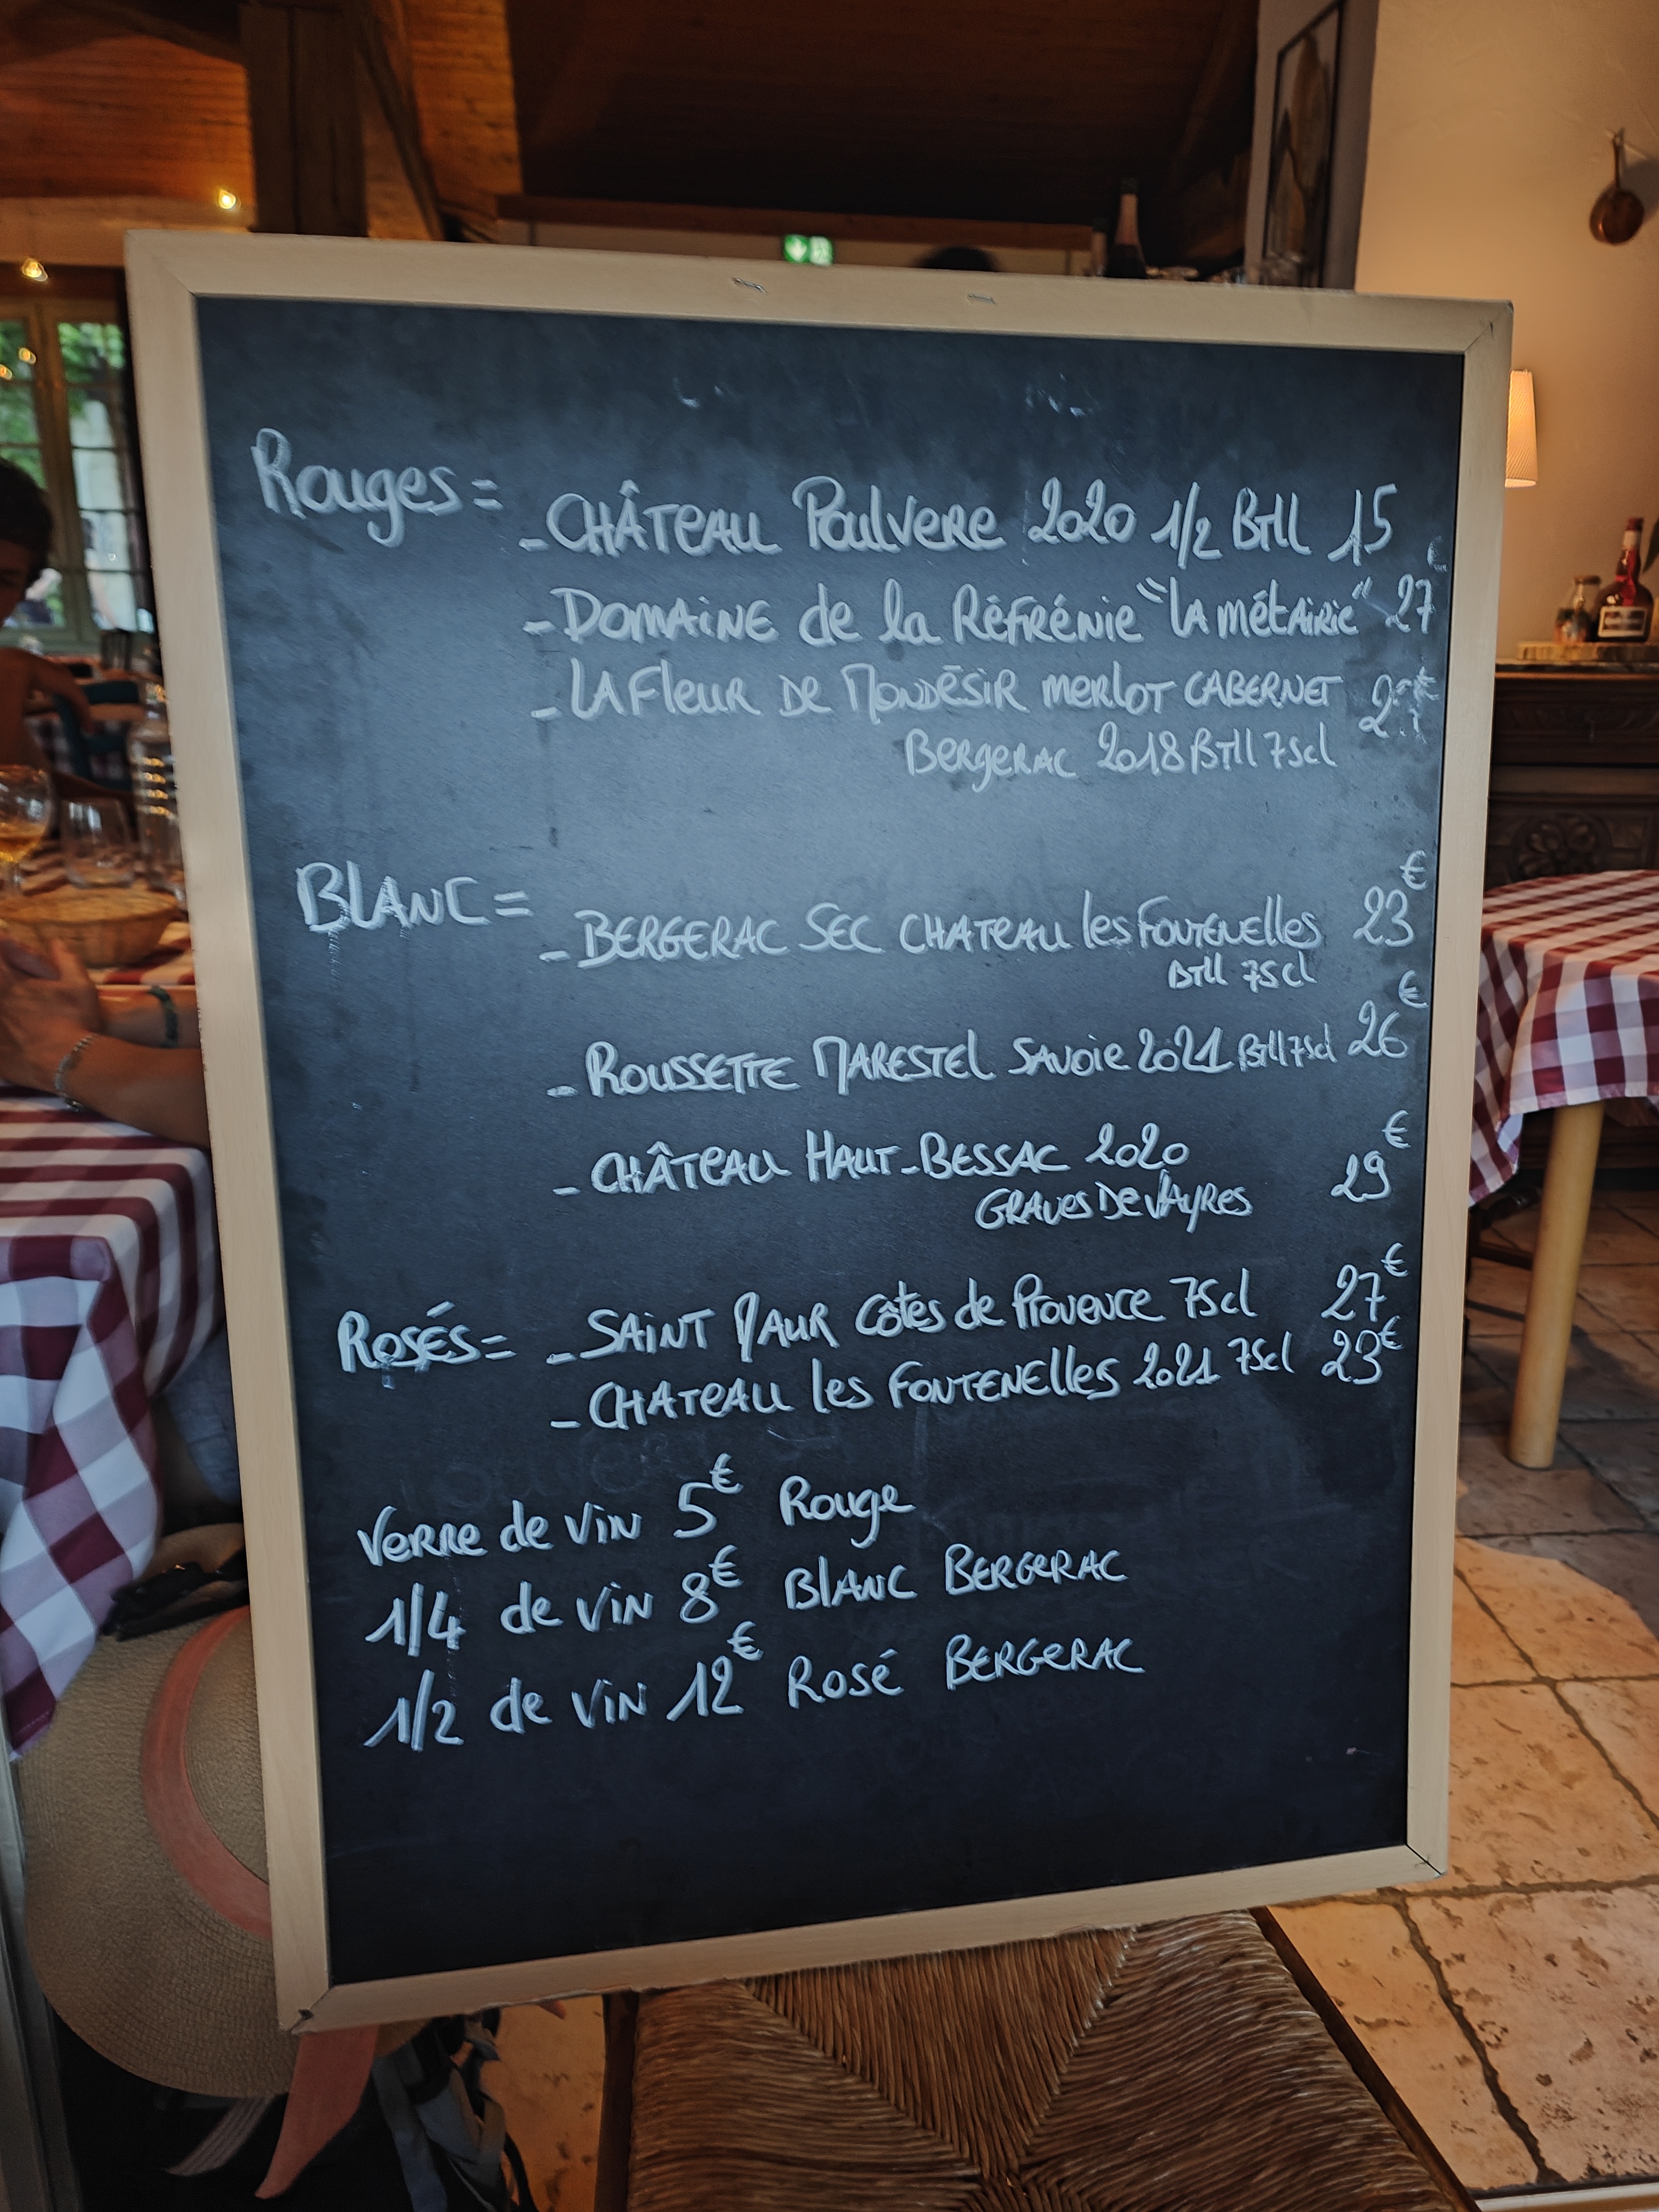 Rouges = - CHÂTEAU Poulvere 2020 1/2 Btll 15
- DOMAINE de la Réfrénie "LA métairie" 27
- LA Fleur DE MONDÉSIR merlot CABERNET
Bergerac 2018 Btll 75cl
BLANC = - BERGERAC SEC CHATEAU les FONTENelles 23€
Btll 75cl
- ROUSSETTE MARESTEL SAVOIE 2021 Btll 75cl 26€
- CHÂTEAU HAUT-BESSAC 2020 29€
GRAVES DE VAYRES
ROSÉS = - SAINT MAUR Côtes de Provence 75cl 27€
- CHATEAU les FONTENElles 2021 75cl 23€
Verre de vin 5€ Rouge
1/4 de vin 8€ BLANC BERGERAC
1/2 de vin 12€ Rosé BERGERAC